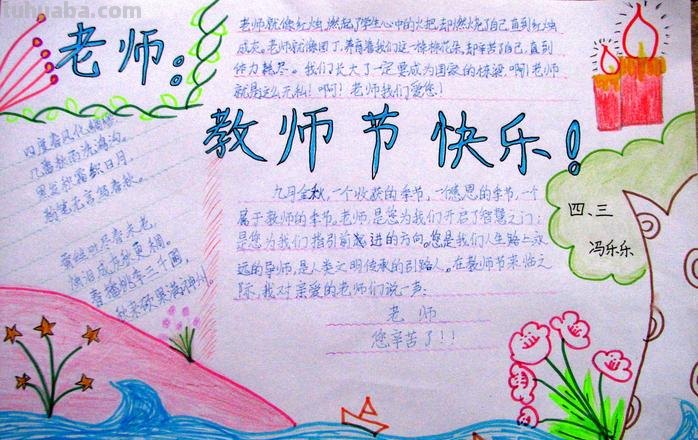 tuhuaba.com
老师：
老师就像红烛，燃起了学生心中的火把却燃烧了自己直到红烛
成灰。老师就像园丁，养育着我们这一棵棵花朵，却辛苦了自己，直到
体力耗尽。我们长大了一定要成为国家的栋梁。啊！老师
就是这么无私！啊！老师我们爱您！
教师节快乐！
四度春风化绸缪
几番秋雨洗鸿沟。
黑发积霜织日月，
粉笔无言写春秋。
蚕丝吐尽春未老，
烛泪成灰秋更稠。
春播桃李三千圃，
秋来硕果满神州。
九月金秋，一个收获的季节，一个感恩的季节，一个
属于教师的季节。老师，是您为我们开启了智慧之门；
是您为我们指引前进的方向。您是我们人生路上永
远的导师，是人类文明传承的引路人。在教师节来临之
际，我对亲爱的老师们说一声：
老师
您辛苦了！！
四、三
冯乐乐